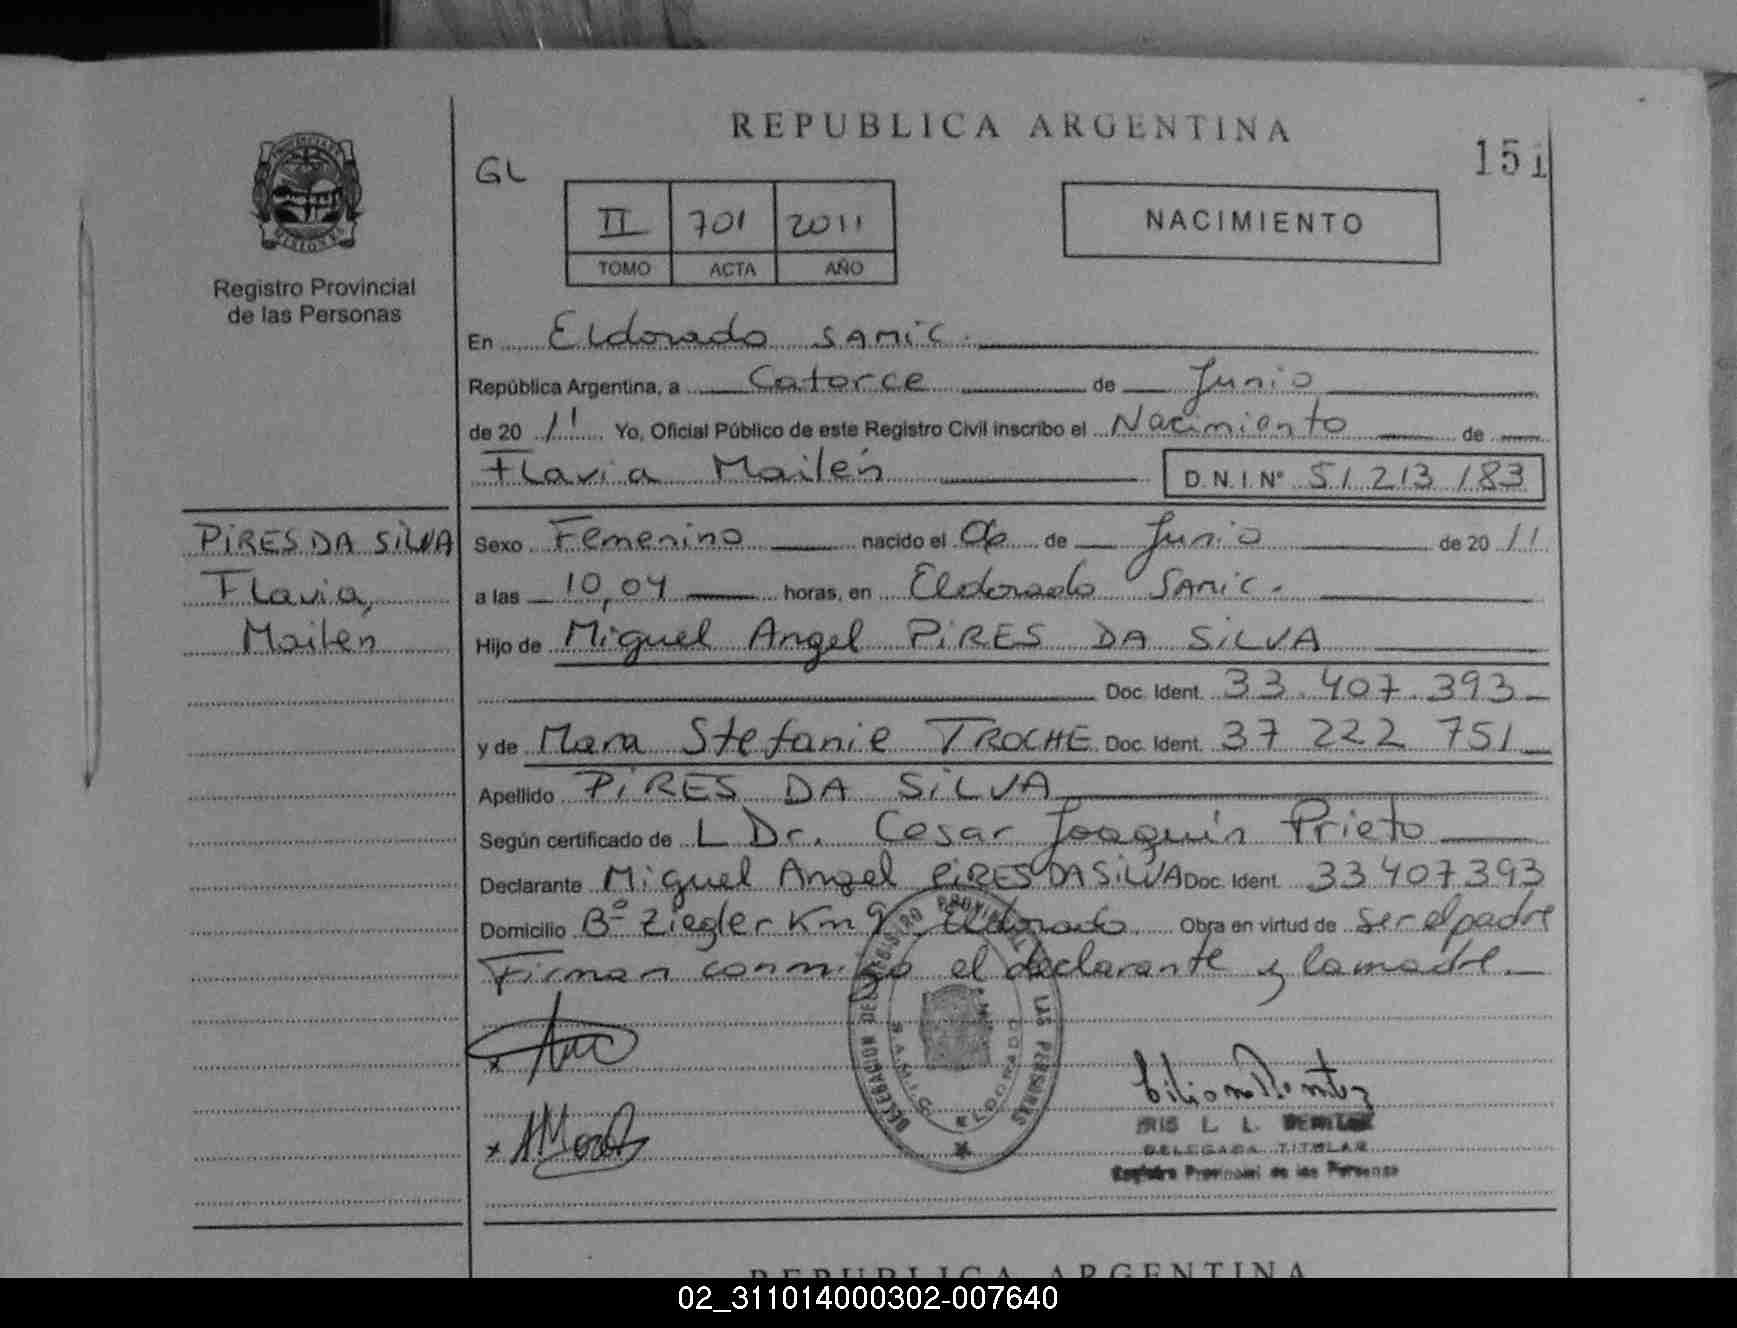 REPUBLICA ARGENTINA
151
GL
II 701 2011
TOMO ACTA AÑO
NACIMIENTO
MISIONES
Registro Provincial
de las Personas
En Eldorado SAMIC.
República Argentina, a Catorce de Junio
de 20 11 Yo, Oficial Público de este Registro Civil inscribo el Nacimiento de
Flavia Mailén
D.N.I. Nº 51 213 183
PIRES DA SILVA
Flavia,
Mailen
Sexo Femenino nacido el 06 de Junio de 20 11
a las 10,04 horas, en Eldorado SAMIC.
Hijo de Miguel Angel PIRES DA SILVA
Doc. Ident. 33.407.393
y de Mara Stefanie TROCHE Doc. Ident. 37 222 751
Apellido PIRES DA SILVA
Según certificado de L Dr. Cesar Joaquín Prieto
Declarante Miguel Angel PIRES DA SILVA Doc. Ident. 33 407 393
Domicilio Bº Ziegler Km 9 Eldorado Obra en virtud de ser el padre
Firman conmigo el declarante y la madre.
DELEGACION DEL REGISTRO PROVINCIAL LAS PERSONAS
S.A.M.I.C. ELDORADO
IRIS L. L.
DELEGADA TITULAR
Registro Provincial de las Personas
REPUBLICA ARGENTINA
02_311014000302-007640